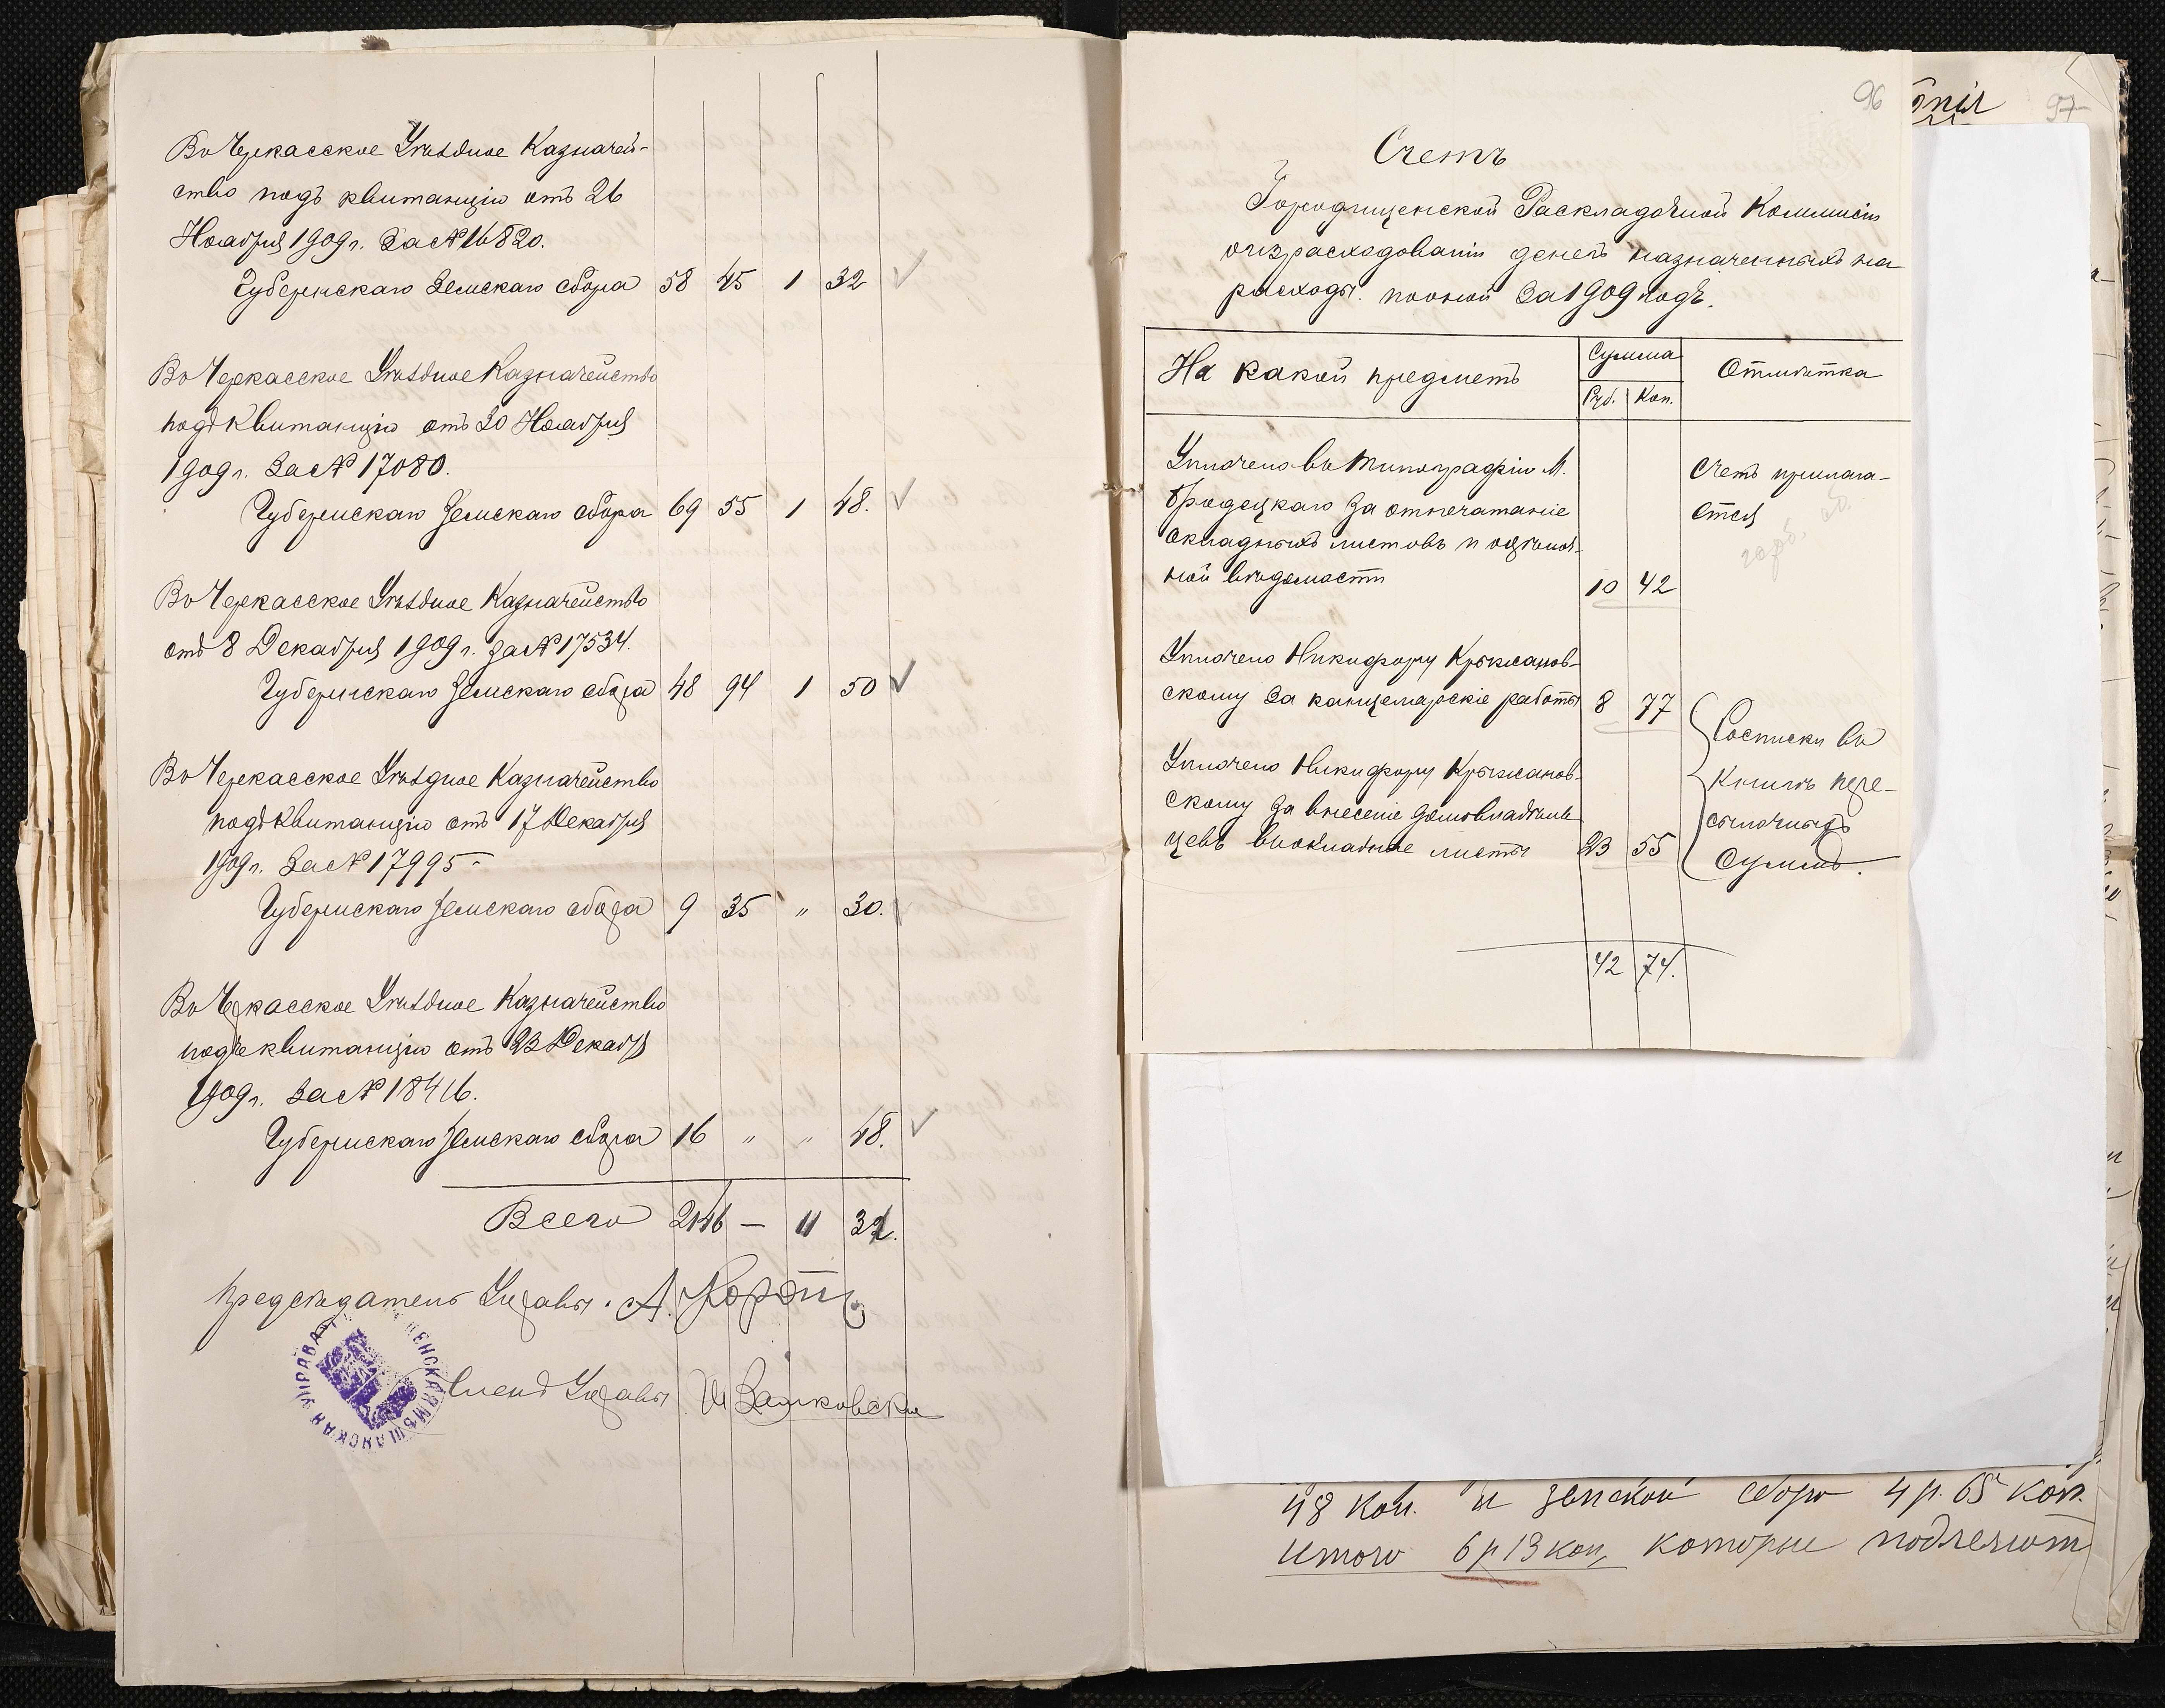 Въ Черкасское Уѣздное Казначей-
ство подъ квитанцію отъ 26
Ноября 1909 г. За № 16820.
Губернскаго Земскаго сбора 58 45 1 32
Въ Черкасское Уѣздное Казначейство
подъ квитанцію отъ 30 Ноября
1909 г. За № 17080.
Губернскаго Земскаго сбора 69 55 1 48.
Въ Черкасское Уѣздное Казначейство
отъ 8 Декабря 1909 г. за № 17534.
Губернскаго Земскаго сбора 48 94 1 50
Въ Черкасское Уѣздное Казначейство
подъ квитанцію отъ 17 Декабря
1909 г. За № 17995
Губернскаго Земскаго сбора 9 35 " 30.
Въ Черкасское Уѣздное Казначейство
подъ квитанцію отъ 23 Декабр
1909 г. За № 18416.
Губернскаго Земскаго сбора 16 " " 48.
Всего — 11
Предсѣдатель Управы. А.
Членъ Управы
УПРАВА ЕНСКАЯ МѢЩАНСКАЯ
96
Счетъ
Городищенской Раскладочной Коммисіи
объ израсходованіи денегъ назначенныхъ на
расходы по оной За 1909 годъ.
На какой предметъ
Сумма
Руб. Коп.
Отмѣтка
Уплочено въ типографію М.
Бродецкаго за отпечатаніе
окладныхъ листовъ и оцѣноч-
ной вѣдомости 10 42
Счетъ прилага-
ется
Уплочено Никифору Крыжанов-
скому За канцелярскіе работы 8 77
Уплочено Никифору Крыжанов-
скому За внесеніе домовладѣль-
цевъ въ окладные листы 23 55
Росписки въ
Книгѣ пере-
сылочныхъ
Суммъ.
42 74.
97
48 коп. и земской сборъ 4 р. 65 коп.
итого 6 р 13 коп, которые подлежат